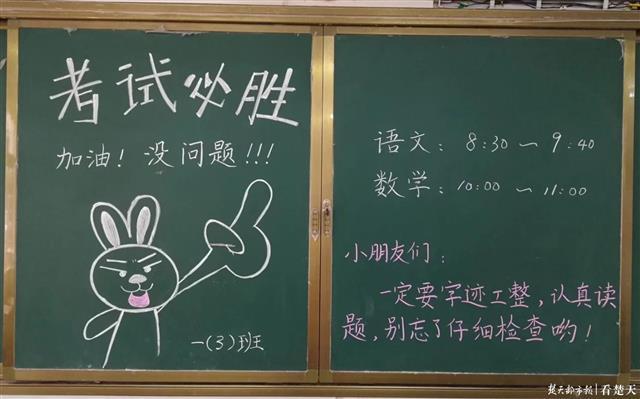 考试必胜
加油！没问题!!!
一(3)班
语文：8:30～9:40
数学：10:00～11:00
小朋友们：
一定要字迹工整，认真读
题，别忘了仔细检查哟！
楚天都市报|看楚天